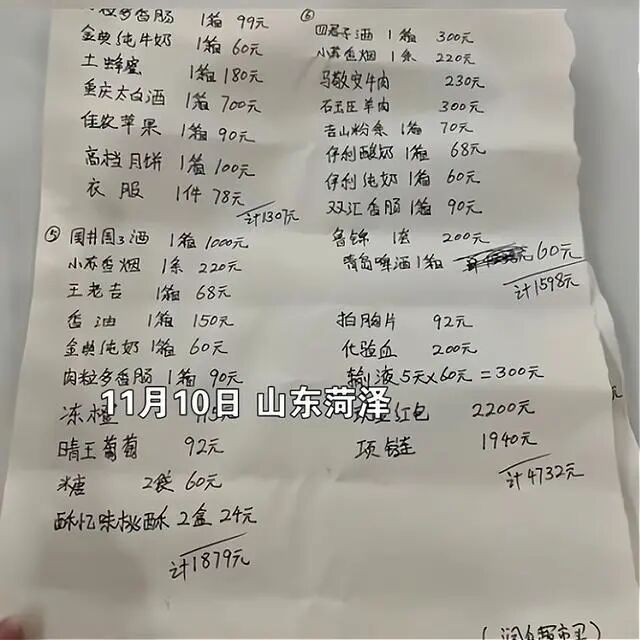 粒多香肠 1箱 99元
金典纯牛奶 1箱 60元
土蜂蜜 1箱 180元
重庆太白酒 1箱 700元
佳农苹果 1箱 90元
高档月饼 1箱 100元
衣服 1件 78元
计1307元
⑤ 国井国3酒 1箱 1000元
小苏香烟 1条 220元
王老吉 1箱 68元
香油 1箱 150元
金典纯奶 1箱 60元
肉粒多香肠 1箱 90元
冻橙
晴王葡萄 92元
米糖 2袋 60元
酥忆味桃酥 2盒 24元
计1879元
⑥
四君子酒 1箱 300元
小苏香烟 1条 220元
马敬安牛肉 230元
石王庄羊肉 300元
吉山粉条 1箱 70元
伊利酸奶 1箱 68元
伊利纯奶 1箱 60元
双汇香肠 1箱 90元
鲁锦 1套 200元
青岛啤酒 1箱 60元
计1598元
拍胸片 92元
化验血 200元
输液5天×60元=300元
红包 2200元
项链 1940元
计4732元
11月10日 山东菏泽